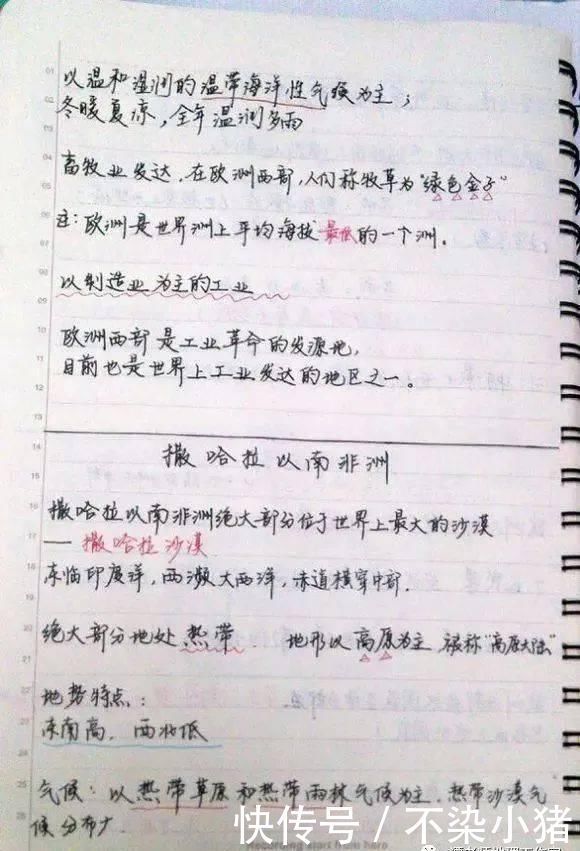 以温和湿润的温带海洋性气候为主
冬暖夏凉，全年温润多雨
畜牧业发达．在欧洲西部，人们称牧草为"绿色金子"
注：欧洲是世界洲上平均海拔最低的一个洲．
以制造业为主的工业
欧洲西部是工业革命的发源地，
目前也是世界上工业发达的地区之一．
撒哈拉以南非洲
撒哈拉以南非洲绝大部分位于世界上最大的沙漠
— 撒哈拉沙漠
东临印度洋，西濒大西洋，赤道横穿中部．
绝大部分地处热带． 地形以高原为主，被称"高原大陆"
地势特点：
东南高．西北低
气候：以热带草原和热带雨林气候为主．热带沙漠气
候分布广
快传号 / 不染小猪
Recording start from here